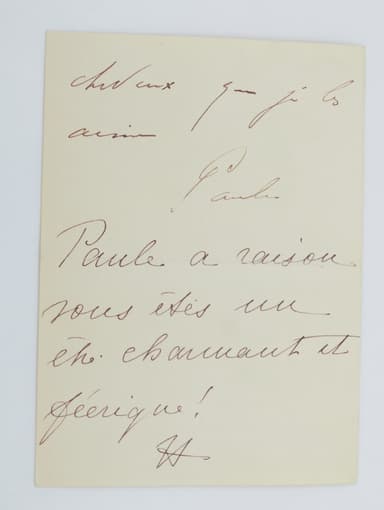 cheveux que je les
aime
Paule
Paule a raison
vous êtes un
être charmant et
féerique!
H